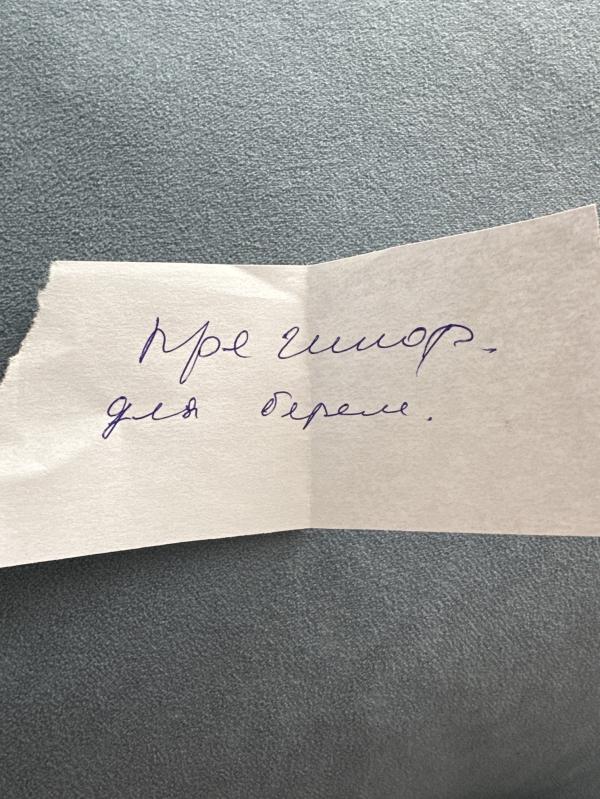 Прегинор.
для берем.